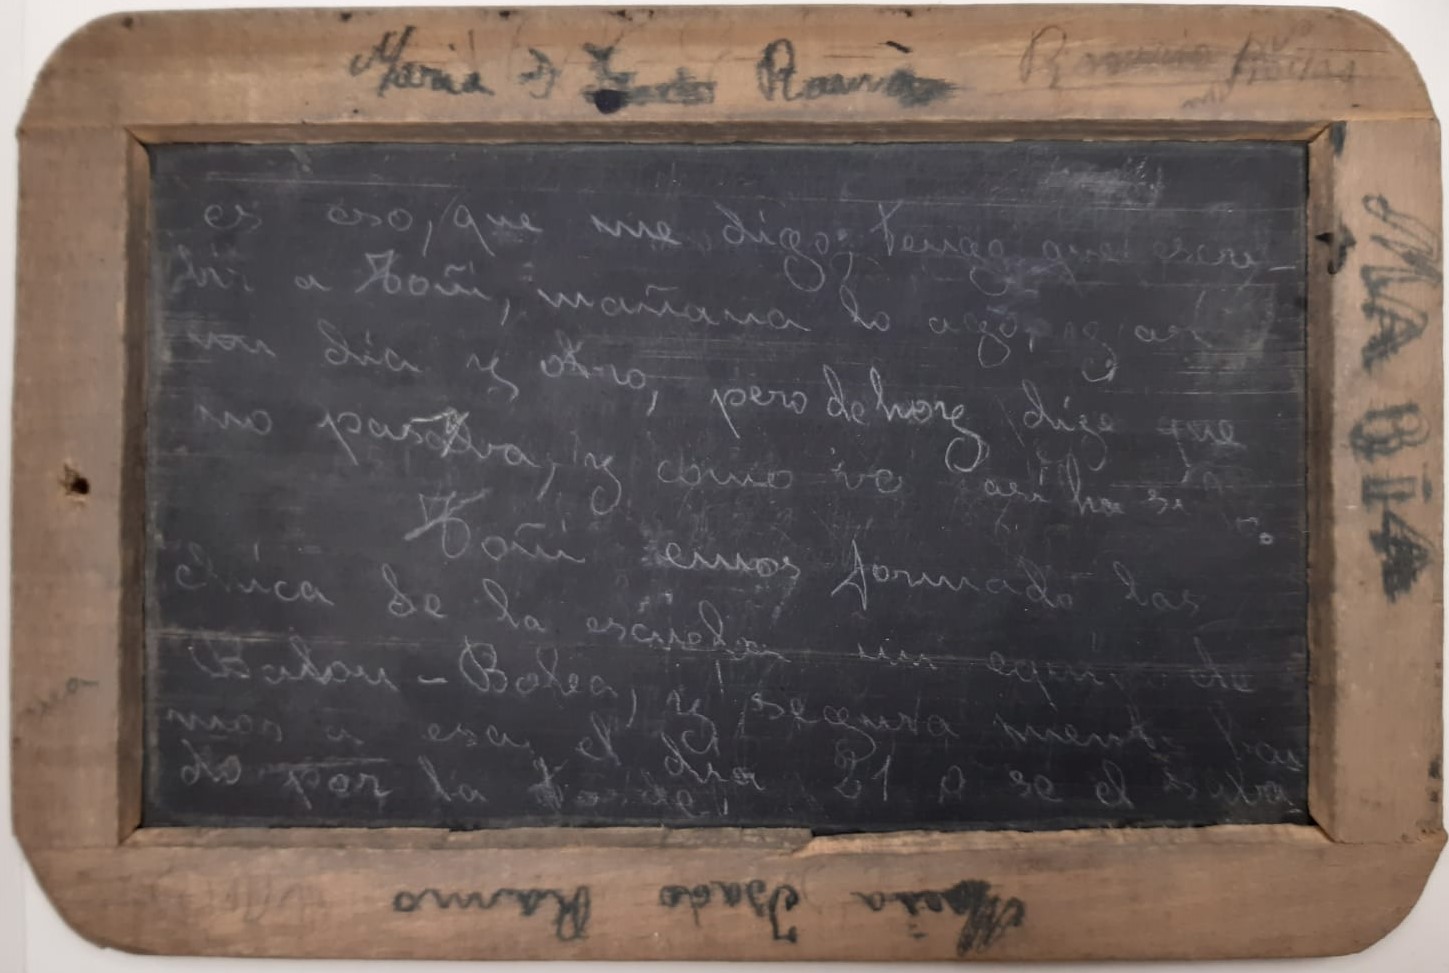 Maria
es eso, que me digo, tengo que escri-
bir a Toñi, mañana lo ago, y asi
un dia y otro, pero de hoy dige que
no pasava, y como va asi ha si
Toñi emos formado las
chica de la escuela un equipo de
Balon-Bolea, y seguramente ba
mos a esa el dia 21 o se el
por la tarde,
MARIA
Maria Ramo